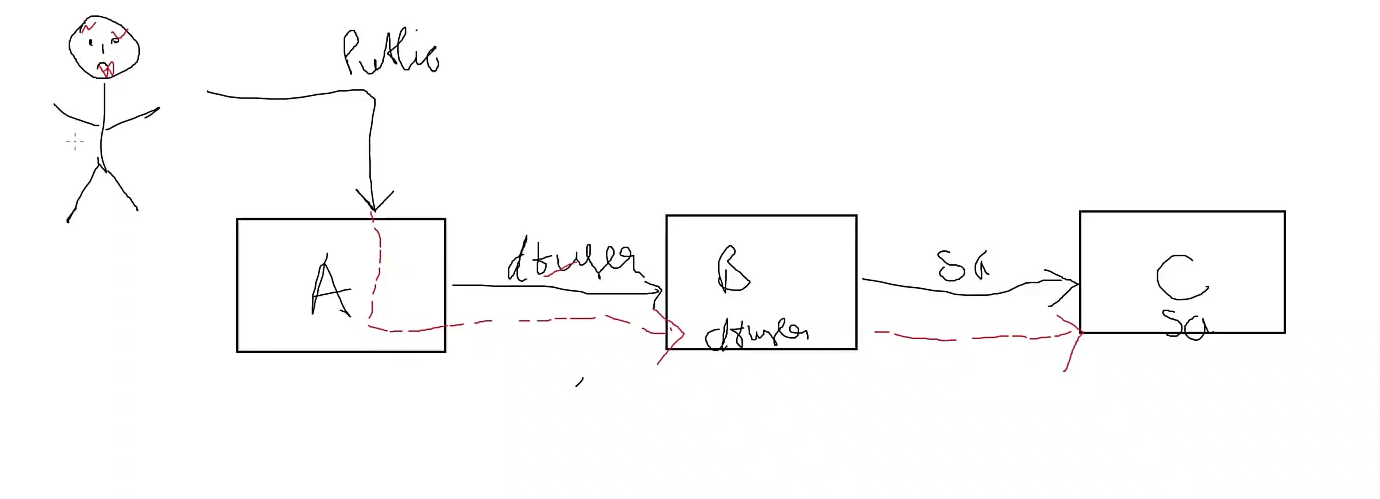 Public
A
dbuser
B
dbuser
sa
C
sa